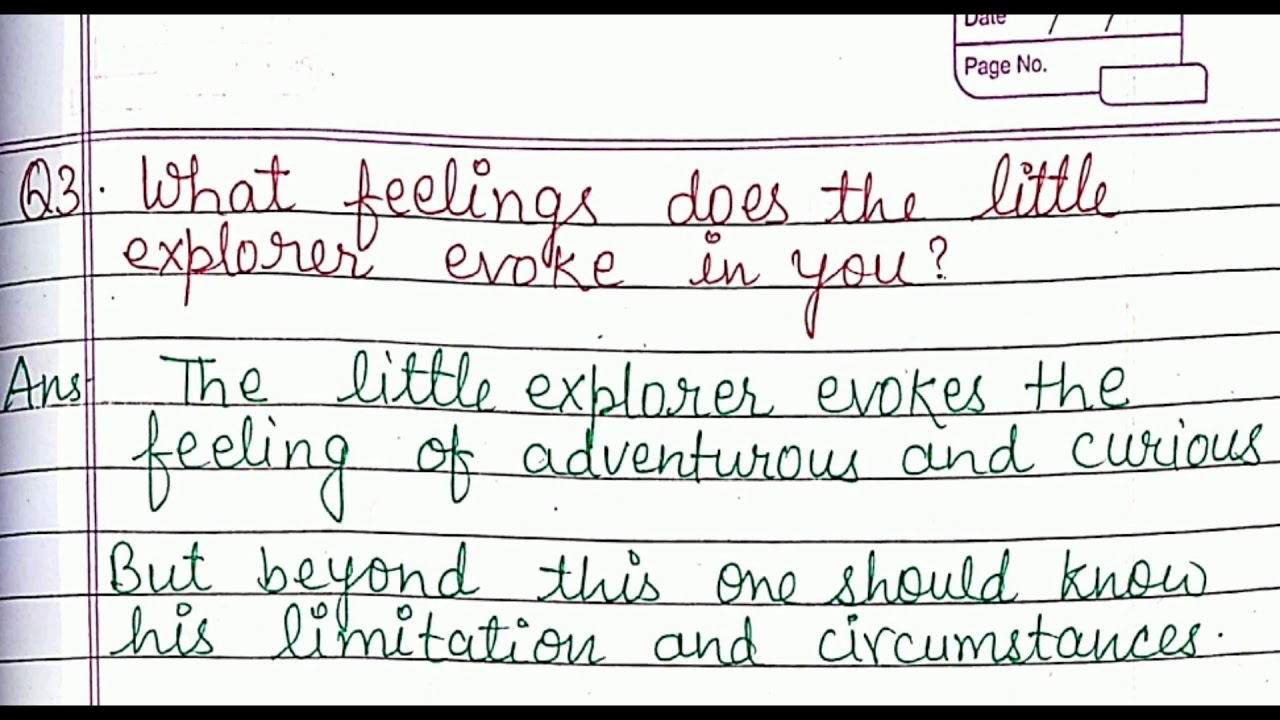 Date / /
Page No.
Q3. What feelings does the little
explorer evoke in you?
Ans The little explorer evokes the
feeling of adventurous and curious
But beyond this one should know
his limitation and circumstances.